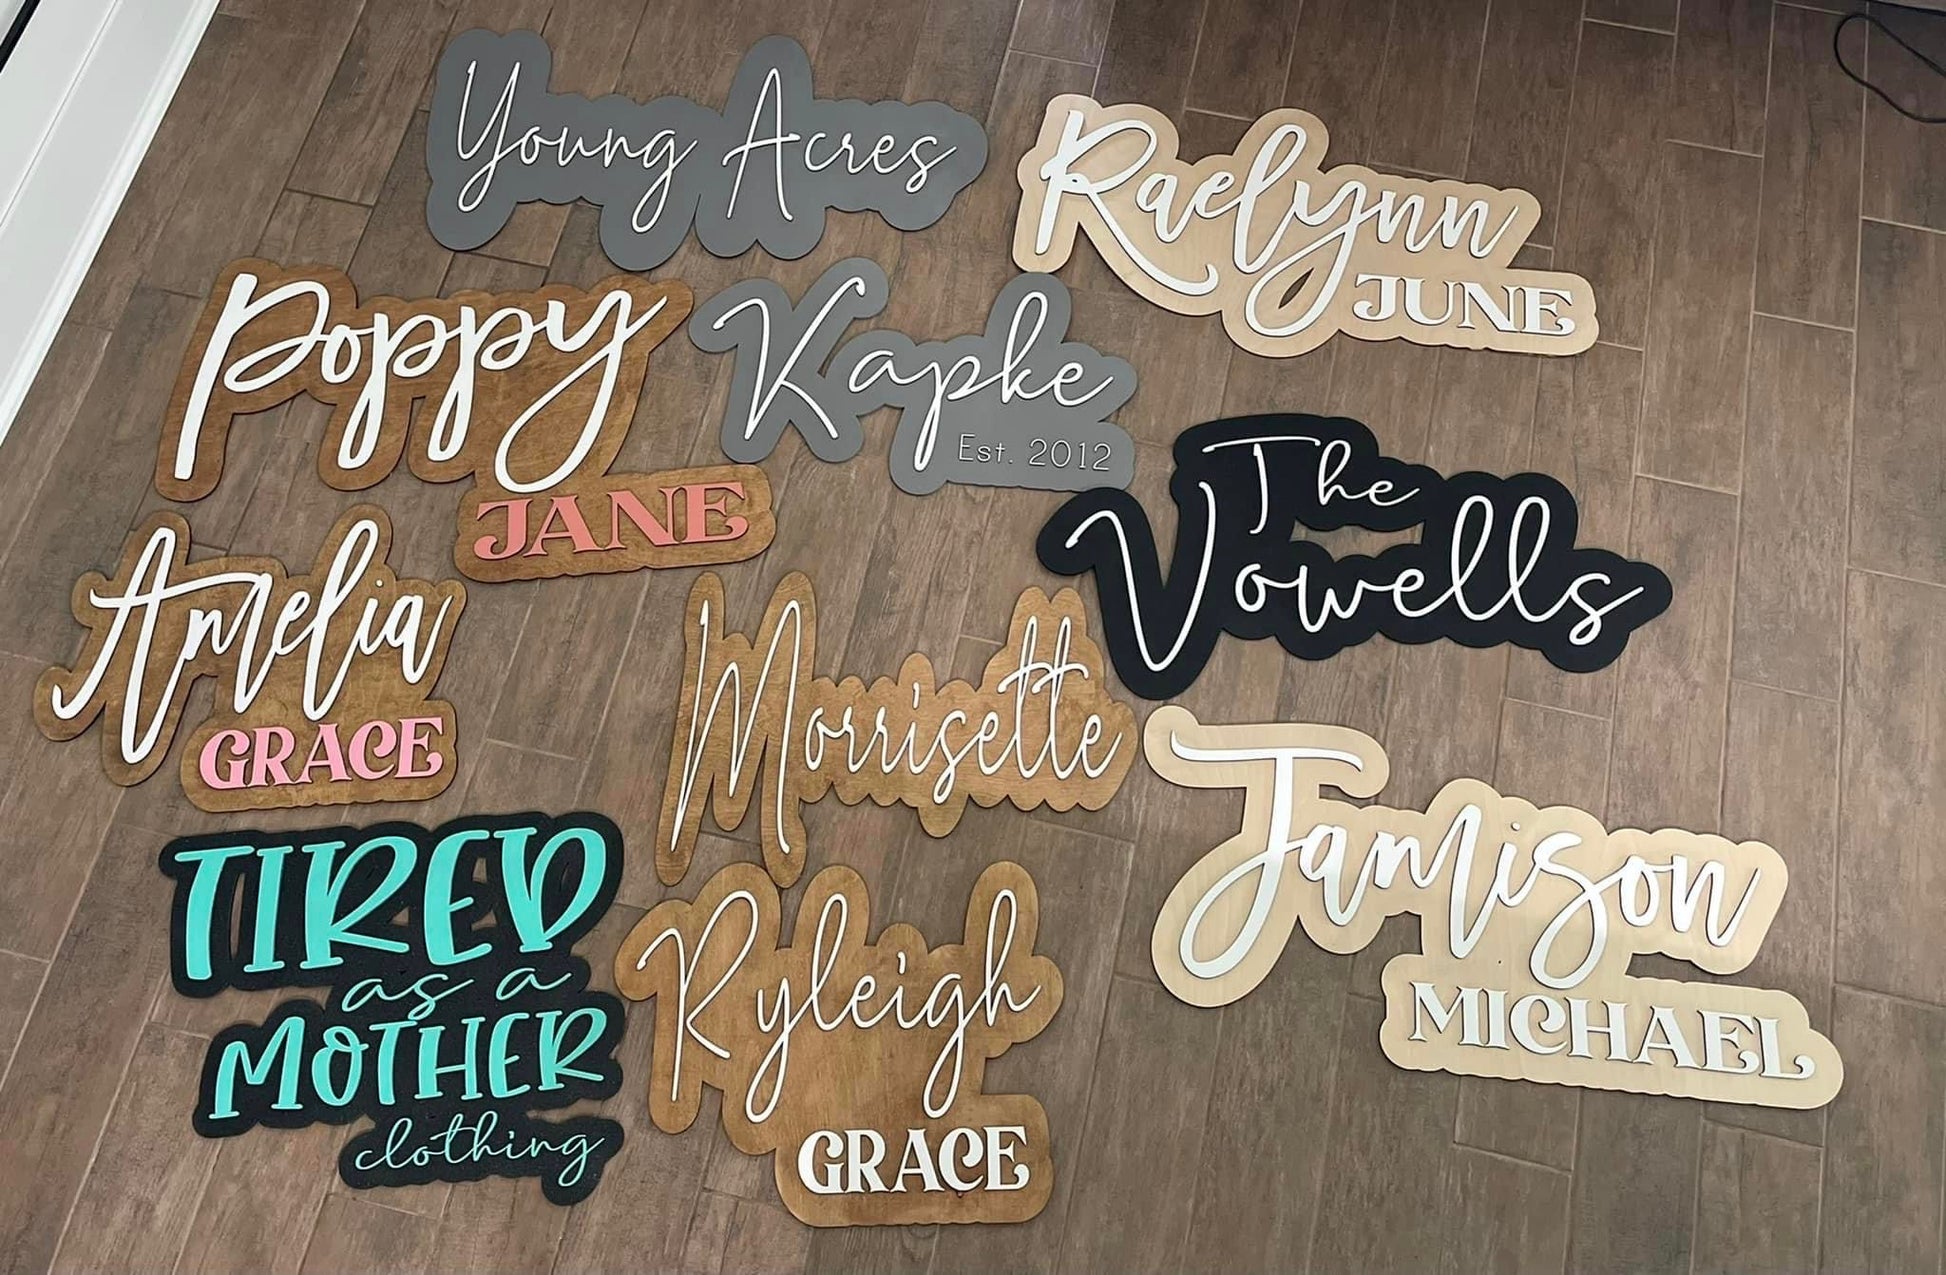 Young Acres
Raelynn
JUNE
Poppy
JANE
Kapke
Est. 2012
The
Vowells
Amelia
GRACE
Morrisette
Jamison
MICHAEL
TIRED
as a
MOTHER
clothing
Ryleigh
GRACE